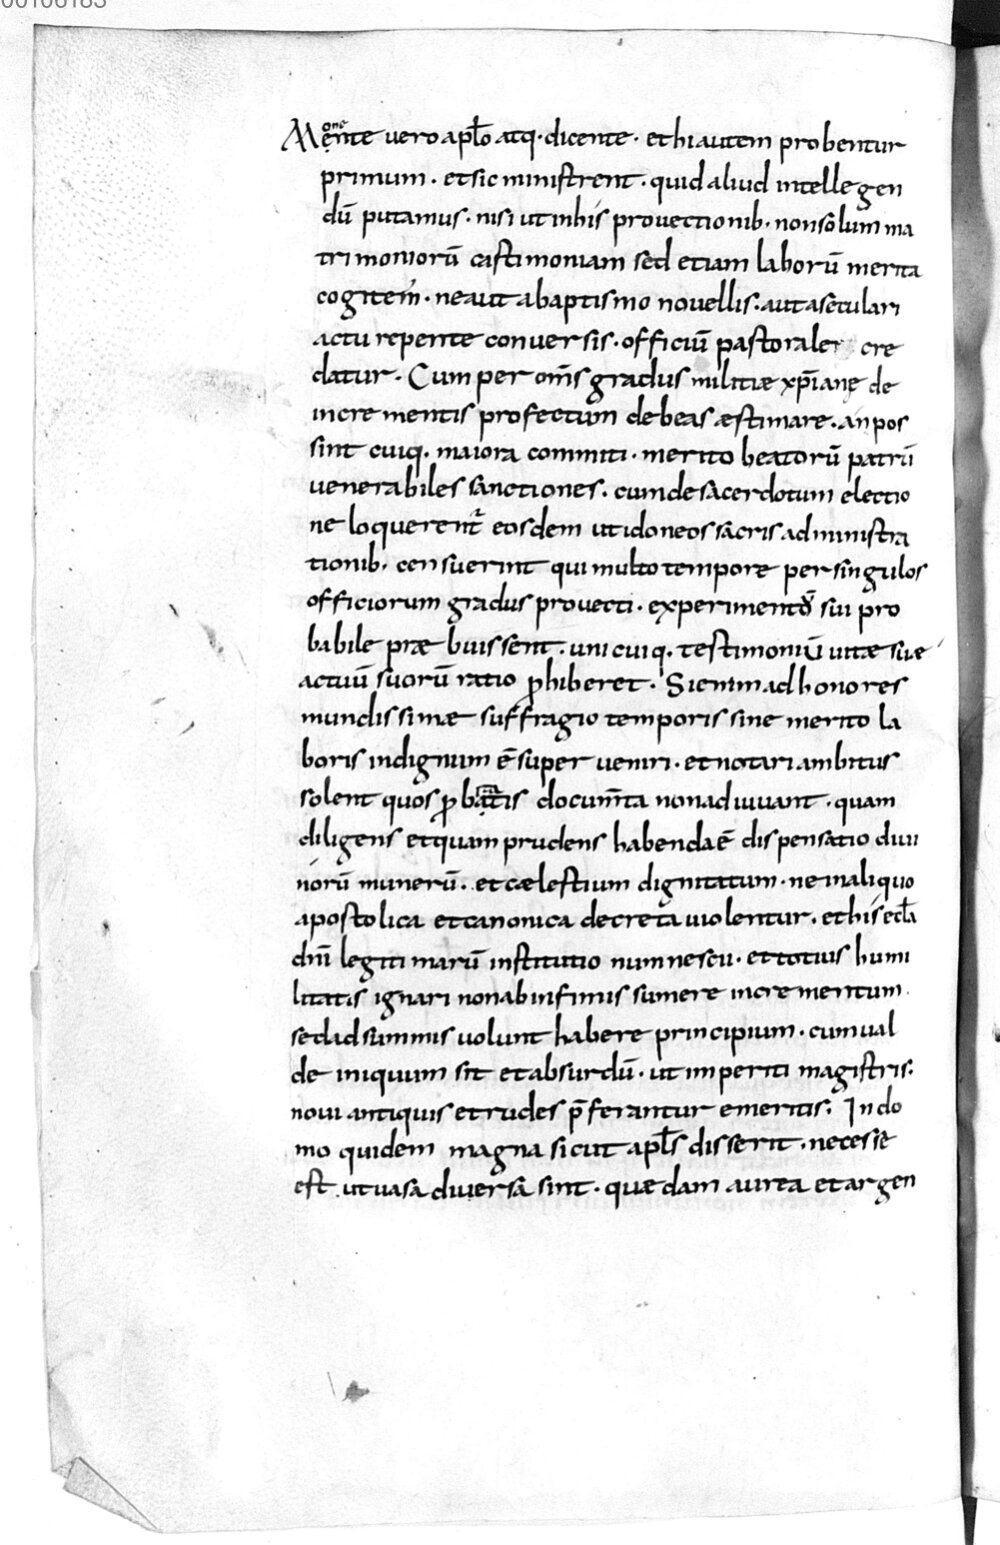 00106183
Mente vero aplo atq· dicente· et hi autem probentur
one
primum· et sic ministrent· quid aliud intellegen
dū putamus· nisi ut in his prouectionib· non solum ma
trimoniorū castimoniam sed etiam laborū merita
cogitem· ne aut a baptismo nouellis· aut a seculari
actu repente conuersis· officiū pastorale cre
datur· Cum per om̄s gradus militiæ xp̄ianę de
incrementis profectum debeas æstimare· an pos
sint cuiq· maiora committi· merito beatorū patrū
uenerabiles sanctiones· cum de sacerdotum electio
ne loquerent eosdem ut idoneos sacris administra
tionib· censuerint qui multo tempore per singulos
officiorum gradus prouecti· experimentū sui pro
babile præbuissent· unicuiq· testimoniū uitæ suæ
actuū suorū ratio phiberet· Si enim ad honores
mundissimæ suffragio temporis sine merito la
boris indignum ē super ueniri· et notari ambitus
solent quos p batis docum̄ta non adiuuant· quam
diligens et quam prudens habenda ē dispensatio diui
norū munerū· et cælestium dignitatum· ne in aliquo
apostolica et canonica decreta uiolentur· et his eccla
dn̄i legitimarū institutio num nescii· et totius humi
litatis ignari non ab infimis sumere incrementum·
sed ad summis uolunt habere principium· cum ual
de iniquum sit et absurdū· ut imperiti magistris·
noui antiquis et rudes p̄ferantur emeritis· In do
mo quidem magna sicut apls disserit· necesse
est ut uasa diuersa sint· quædam aurea et argen